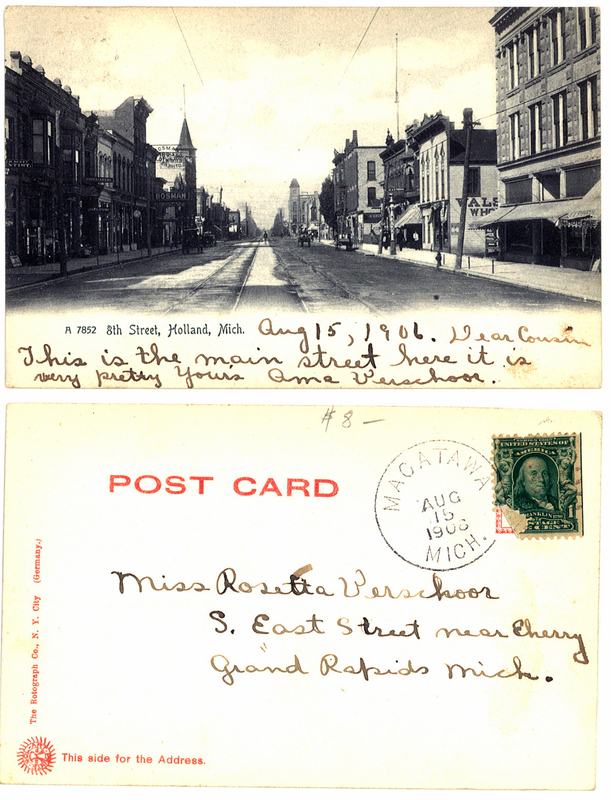 BOSMAN
VALS
WH
A 7852 8th Street, Holland, Mich. Aug 15, 1906. Dear Cousin
This is the main street here it is
very pretty Yours Ama Verschoor.
#8 —
POST CARD
MACATAWA
AUG
15
1906
MICH.
SERIES 1902
UNITED STATES OF
AMERICA
FRANKLIN
1
POSTAGE
CENT
Miss Rosetta Verschoor
S. East Street near Cherry
Grand Rapids Mich.
The Rotograph Co., N. Y. City (Germany.)
This side for the Address.